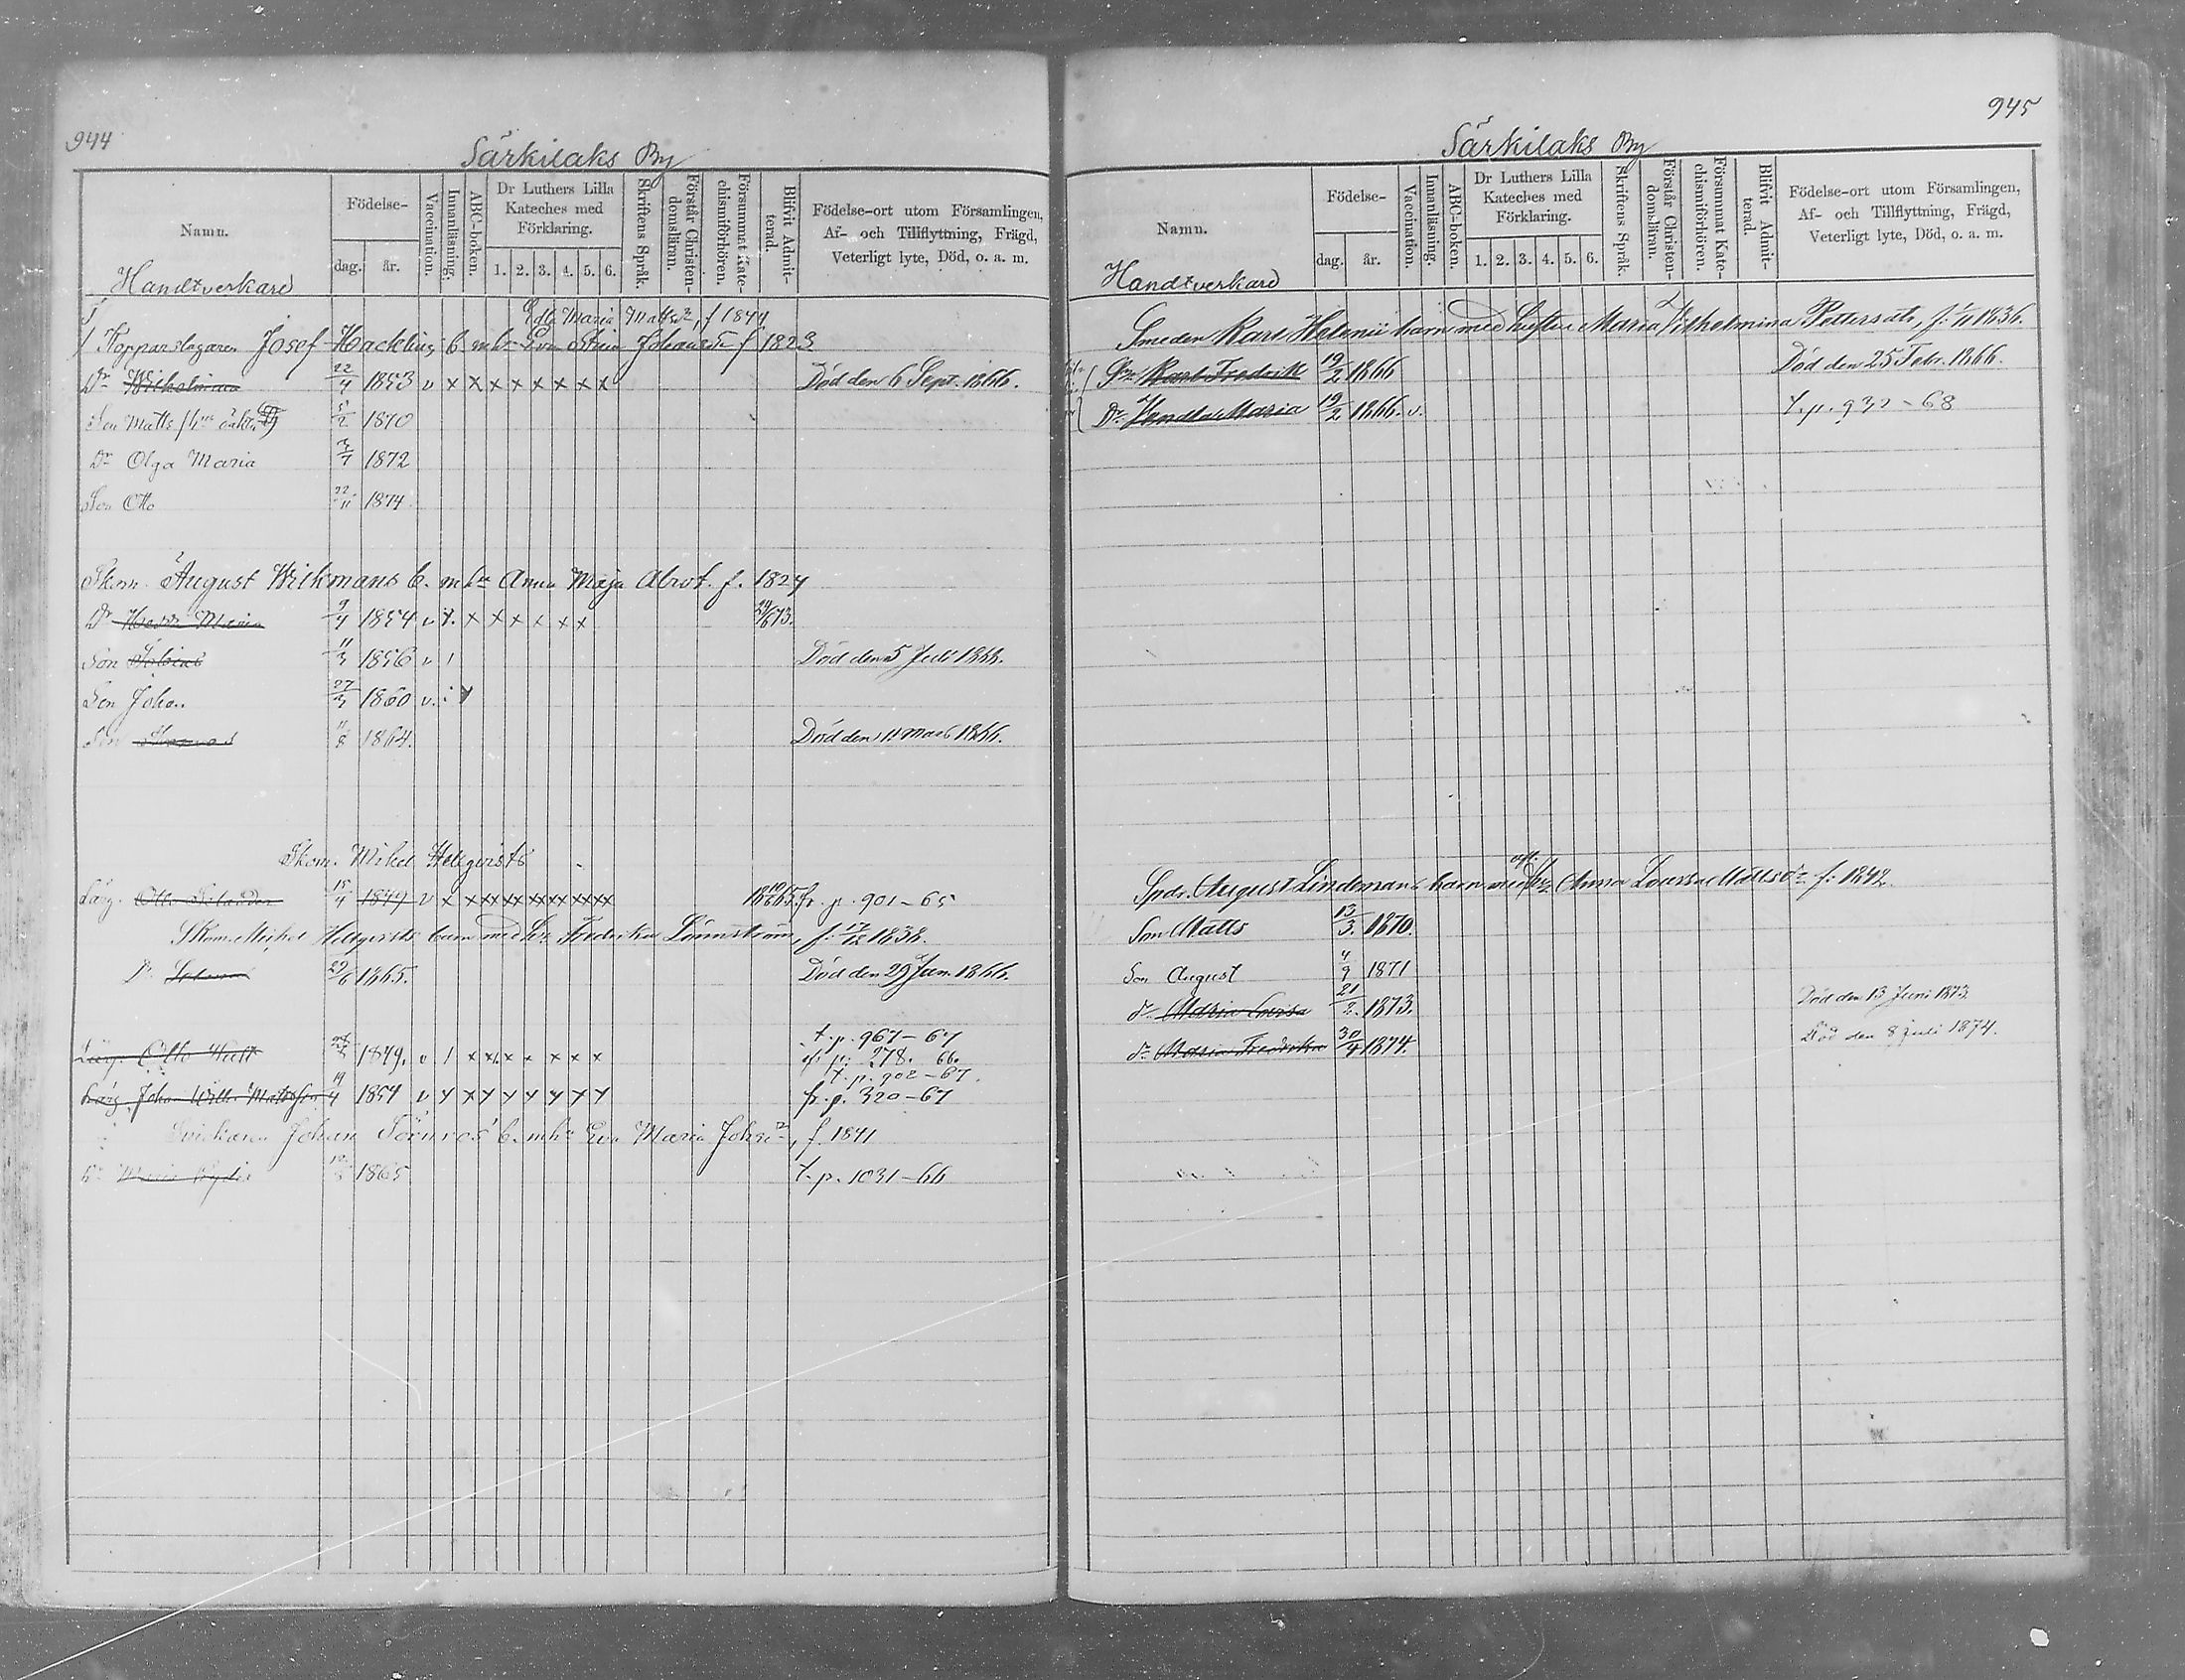 944
Särkilaks By
Namn.
Födelse-
dag.
år.
Vaccination.
Innanläsning.
ABC-boken.
Dr Luthers Lilla
Kateches med
Förklaring.
1. 2. 3. 4. 5. 6.
Skriftens Språk.
Förstår Christen-
domsläran.
Försummat Kate-
chismiförhören.
Blifvit Admit-
terad.
Födelse-ort utom Församlingen,
Af- och Tillflyttning, Frägd,
Veterligt lyte, Död, o. a. m.
Handtverkare
Maria f 1844
Kopparslagaren Josef Hacklins b. m. hu Eva Stina f 1823
Dr Wilhelmina 22/4 1853 v x x x x x x x x Död den 6 Sept. 1866.
Son Matts 5/2 1870
Dr Olga Maria 3/7 1872
Son Otto 22/11 1874
Skom. August Wikmans b. m. hu Anna Maja f. 1824
Dr Maria 9/4 1854 v x x x x x x
Son 11/3 1856 v 1 Död den 5 Juli 1868.
Son Johan 27/3 1860 v.
Son 1864. Död den 11 Mars 1866.
Skom. Mikel Hellqvists
Lärg. Otto 15/4 1849 v x fr. p. 901-65
Skom. Mikel Hellqvists barn med hu Fredrika Lönnström, f. 17/12 1838.
Dr 29/6 1865. Död den 29 Jan. 1866.
t. p. 967-67
Lärg. Otto 1849. v 1 p. 278. 66.
t. p. 902-67.
Lärg. Johan Wilh. Mattsson 19/4 1854 v fr. p. 320-67
Johan Törnroos b. m. hu Eva Maria f. 1841
Dr Maria 1865 t. p. 1031-66
945
Särkilaks By
Namn.
Födelse-
dag.
år.
Vaccination.
Innanläsning.
ABC-boken.
Dr Luthers Lilla
Kateches med
Förklaring.
1. 2. 3. 4. 5. 6.
Skriftens Språk.
Förstår Christen-
domsläran.
Försummat Kate-
chismiförhören.
Blifvit Admit-
terad.
Födelse-ort utom Församlingen,
Af- och Tillflyttning, Frägd,
Veterligt lyte, Död, o. a. m.
Handtverkare
Smeden Karl barn med hustru Maria Vilhelmina f. 1/11 1836.
Karl Fredrik 19/2 1866 Död den 25 Febr. 1866.
Dr Maria 19/2 1866. v. t. p. 932-68
August Lindemans barn med Anna Lovisa f. 1842.
Son Matts 13/3 1870.
Son August 4/9 1871
dr Maria Lovisa 21/2 1873. Död den 13 Juni 1873.
dr Maria Fredrika 30/4 1874. Död den 8 juli 1874.